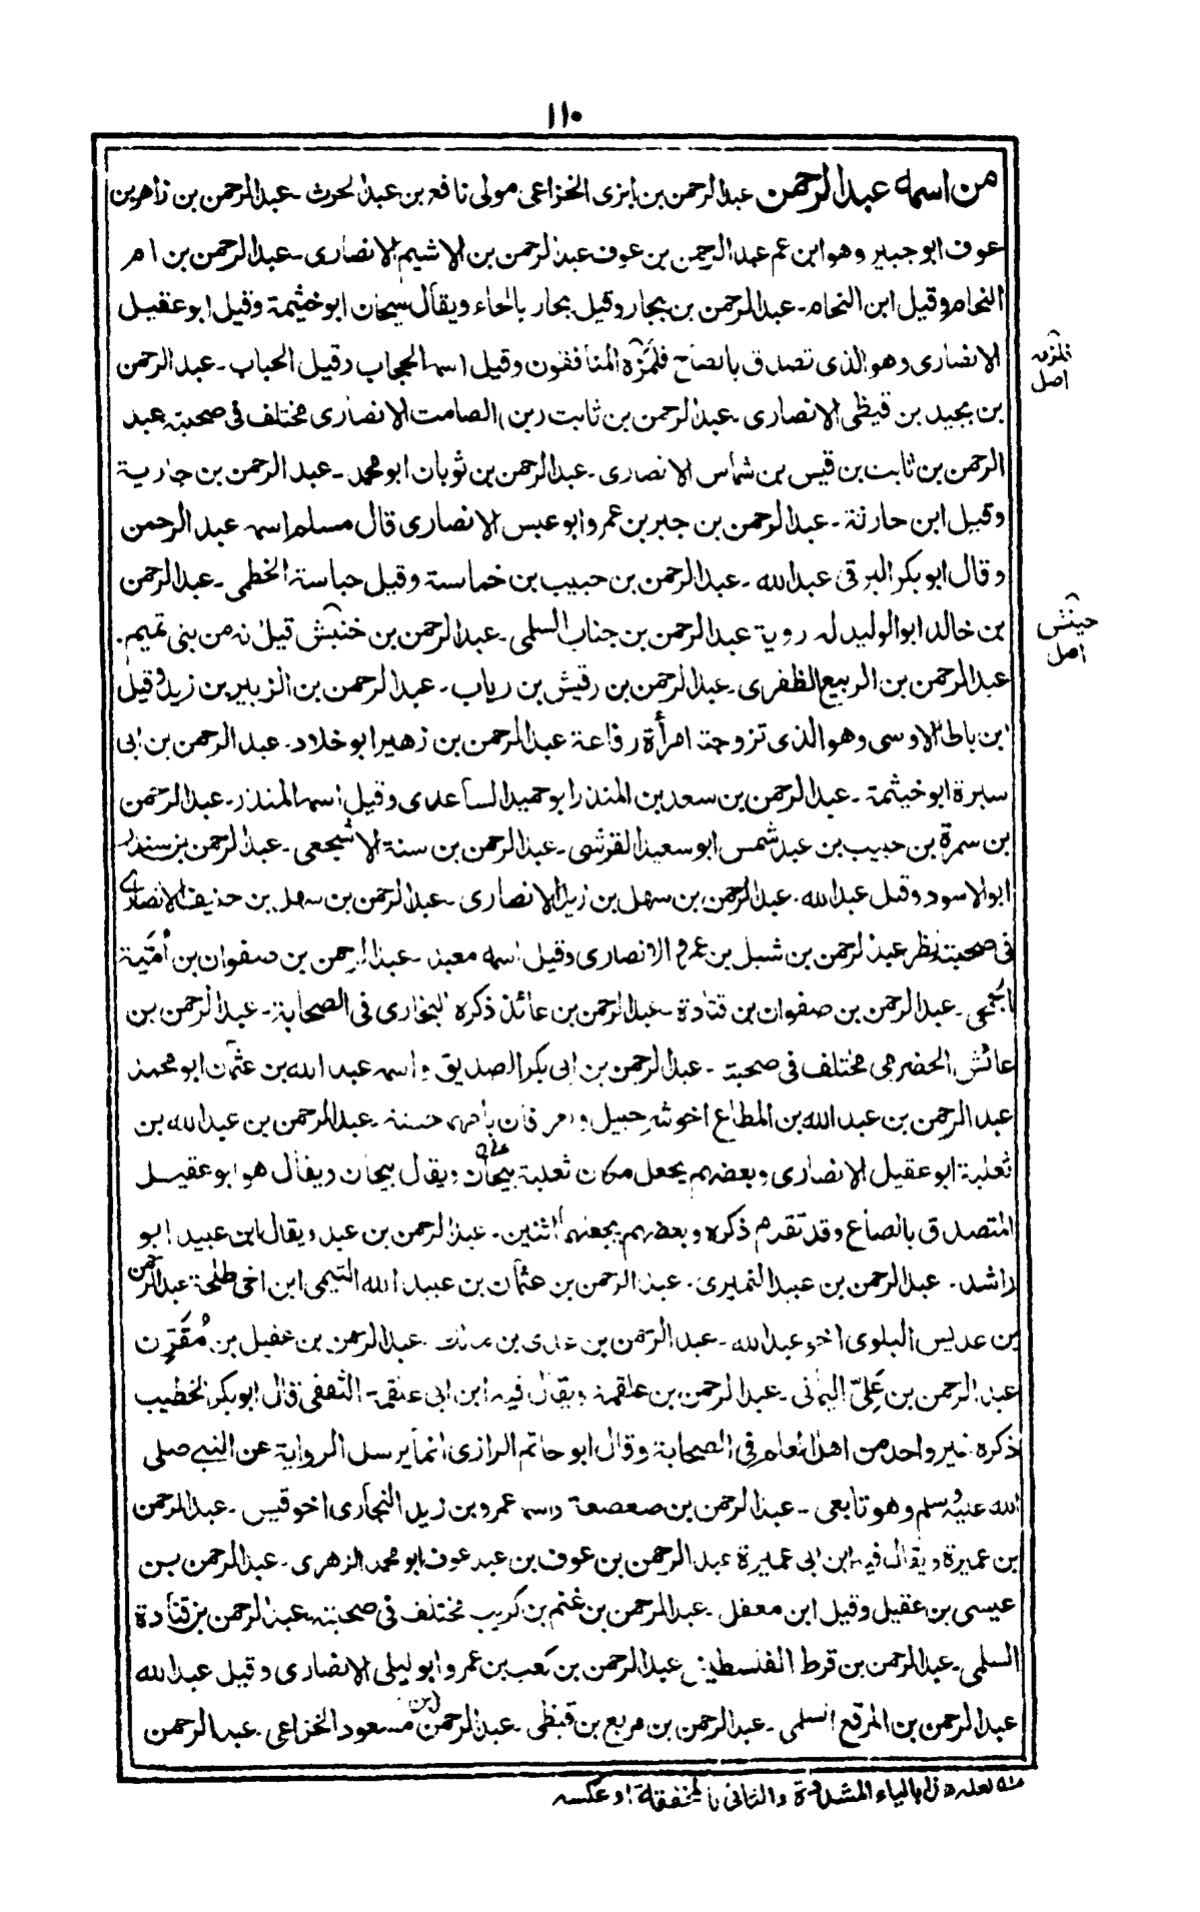 ١١٠
من اسمه عبدالرحمن عبدالرحمن بن ابزى الخزاعى مولى نافع بن عبد الحرث ۔ عبدالرحمن بن زاهر بن
عوف ابو جبير وهو ابن عم عبدالرحمن بن عوف عبدالرحمن بن الاشيم الانصارى ۔ عبدالرحمن بن ام
النحام وقيل ابن النحام ۔ عبدالرحمن بن بيجار وقيل بحار بالحاء ويقال سيحان ابو خيثمة وقيل ابو عقيل
الانصارى وهو الذى تصدق بالصاع فلمزه المنافقون وقيل اسمه الحجاب وقيل الحباب ۔ عبد الرحمن
بن بجيد بن قيظى الانصارى ۔ عبدالرحمن بن ثابت (بن) الصامت الانصارى مختلف فى صحبته عبد
الرحمن بن ثابت بن قيس بن شماس الانصارى ۔ عبدالرحمن بن ثوبان ابو محمد ۔ عبد الرحمن بن جارية
وقيل ابن حارثة ۔ عبدالرحمن بن جبر بن عمرو ابو عبس الانصارى قال مسلم اسمه عبد الرحمن
وقال ابو بكر البرقى عبدالله ۔ عبدالرحمن بن حبيب بن خماسة وقيل حباسة الخطمى ۔ عبدالرحمن
بن خالد ابو الوليد له روية عبدالرحمن بن جناب السلمى ۔ عبدالرحمن بن خنبش قيل انه من بنى تميم ۔
عبدالرحمن بن الربيع الظفرى ۔ عبدالرحمن بن رقيش بن رياب ۔ عبدالرحمن بن الزبير بن زيد وقيل
ابن باطا الاوسى وهو الذى تزوجت امرأة رفاعة عبدالرحمن بن زهير ابو خلاد ۔ عبد الرحمن بن ابى
سبرة ابو خيثمة ۔ عبدالرحمن بن سعد بن المنذر ابو حميد الساعدى وقيل اسمه المنذر ۔ عبدالرحمن
بن سمرة بن حبيب بن عبد شمس ابو سعيد القرشى ۔ عبدالرحمن بن سنة الاشجعى ۔ عبدالرحمن بن سندر
ابو الاسود وقيل عبدالله ۔ عبدالرحمن بن سهل بن زيد الانصارى ۔ عبدالرحمن بن سهل بن حنيف الانصارى
فى صحبته نظر عبدالرحمن بن شبل بن عمرو الانصارى وقيل اسمه معبد ۔ عبدالرحمن بن صفوان بن أمَيّة
الجمحى ۔ عبدالرحمن بن صفوان بن قتادة ۔ عبدالرحمن بن عائذ ذكره البخارى فى الصحابة ۔ عبد الرحمن بن
عائش الحضرمى مختلف فى صحبته ۔ عبدالرحمن بن ابى بكر الصديق واسمه عبد الله بن عثمان ابو محمد
عبد الرحمن بن عبدالله بن المطاع اخو شرحبيل و يعرفان بامهما حسنة ۔ عبدالرحمن بن عبدالله بن
ثعلبة ابو عقيل الانصارى وبعضهم يجعل مكان ثعلبة بيحان ويقال بيحان ويقال هو ابو عقيل
المتصدق بالصاع وقد تقدم ذكره وبعضهم يجعلهم اثنين ۔ عبدالرحمن بن عبد ويقال ابن عبيد ابو
راشد ۔ عبدالرحمن بن عبيد النميرى ۔ عبد الرحمن بن عثمان بن عبيد الله التيمى ابن اخى طلحة عبدالرحمن
بن عديس البلوى اخو عبدالله ۔ عبد الرحمن بن عدى بن مالك ۔ عبدالرحمن بن عقيل بن مُقَرِّن
عبدالرحمن بن عَلِيّ اليمانى ۔ عبدالرحمن بن علقمة ويقال فيه ابن ابى علقمة الثقفى قال ابو بكر الخطيب
ذكره غير واحد من اهل العلم فى الصحابة وقال ابو حاتم الرازى انما يرسل الرواية عن النبى صلى
الله عليه وسلم وهو تابعى ۔ عبدالرحمن بن صعصعة واسمه عمرو بن زيد النجارى اخو قيس ۔ عبدالرحمن
بن عميرة ويقال فيه ابن ابى عميرة عبد الرحمن بن عوف بن عبد عوف ابو محمد الزهرى ۔ عبدالرحمن بن
عيسى بن عقيل وقيل ابن معقل ۔ عبدالرحمن بن غنم بن كريب مختلف فى صحبته عبدالرحمن بن قتادة
السلمى ۔ عبدالرحمن بن قرط الفلسطينى عبدالرحمن بن كعب بن عمرو ابو ليلى الانصارى وقيل عبدالله
عبدالرحمن بن المرقع السلمى ۔ عبدالرحمن بن مربع بن قيظى ۔ عبدالرحمن (بن) مسعود الخزاعى ۔ عبدالرحمن
فلمزه
اصل
حينش
اصل
عه لعله هذا بالياء المشددة والثانى بالمخففة او عكسه